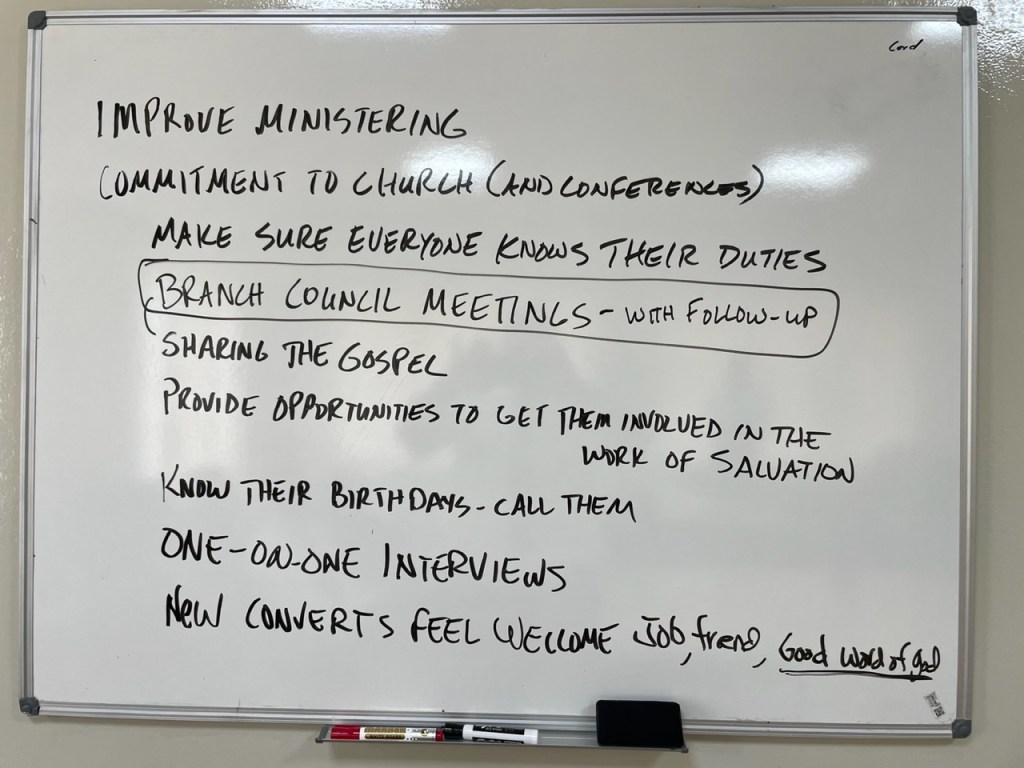 Lord
IMPROVE MINISTERING
COMMITMENT TO CHURCH (AND CONFERENCES)
MAKE SURE EVERYONE KNOWS THEIR DUTIES
BRANCH COUNCIL MEETINGS - WITH FOLLOW-UP
SHARING THE GOSPEL
PROVIDE OPPORTUNITIES TO GET THEM INVOLVED IN THE
WORK OF SALVATION
KNOW THEIR BIRTHDAYS - CALL THEM
ONE-ON-ONE INTERVIEWS
NEW CONVERTS FEEL WELCOME Job, friend, Good word of god